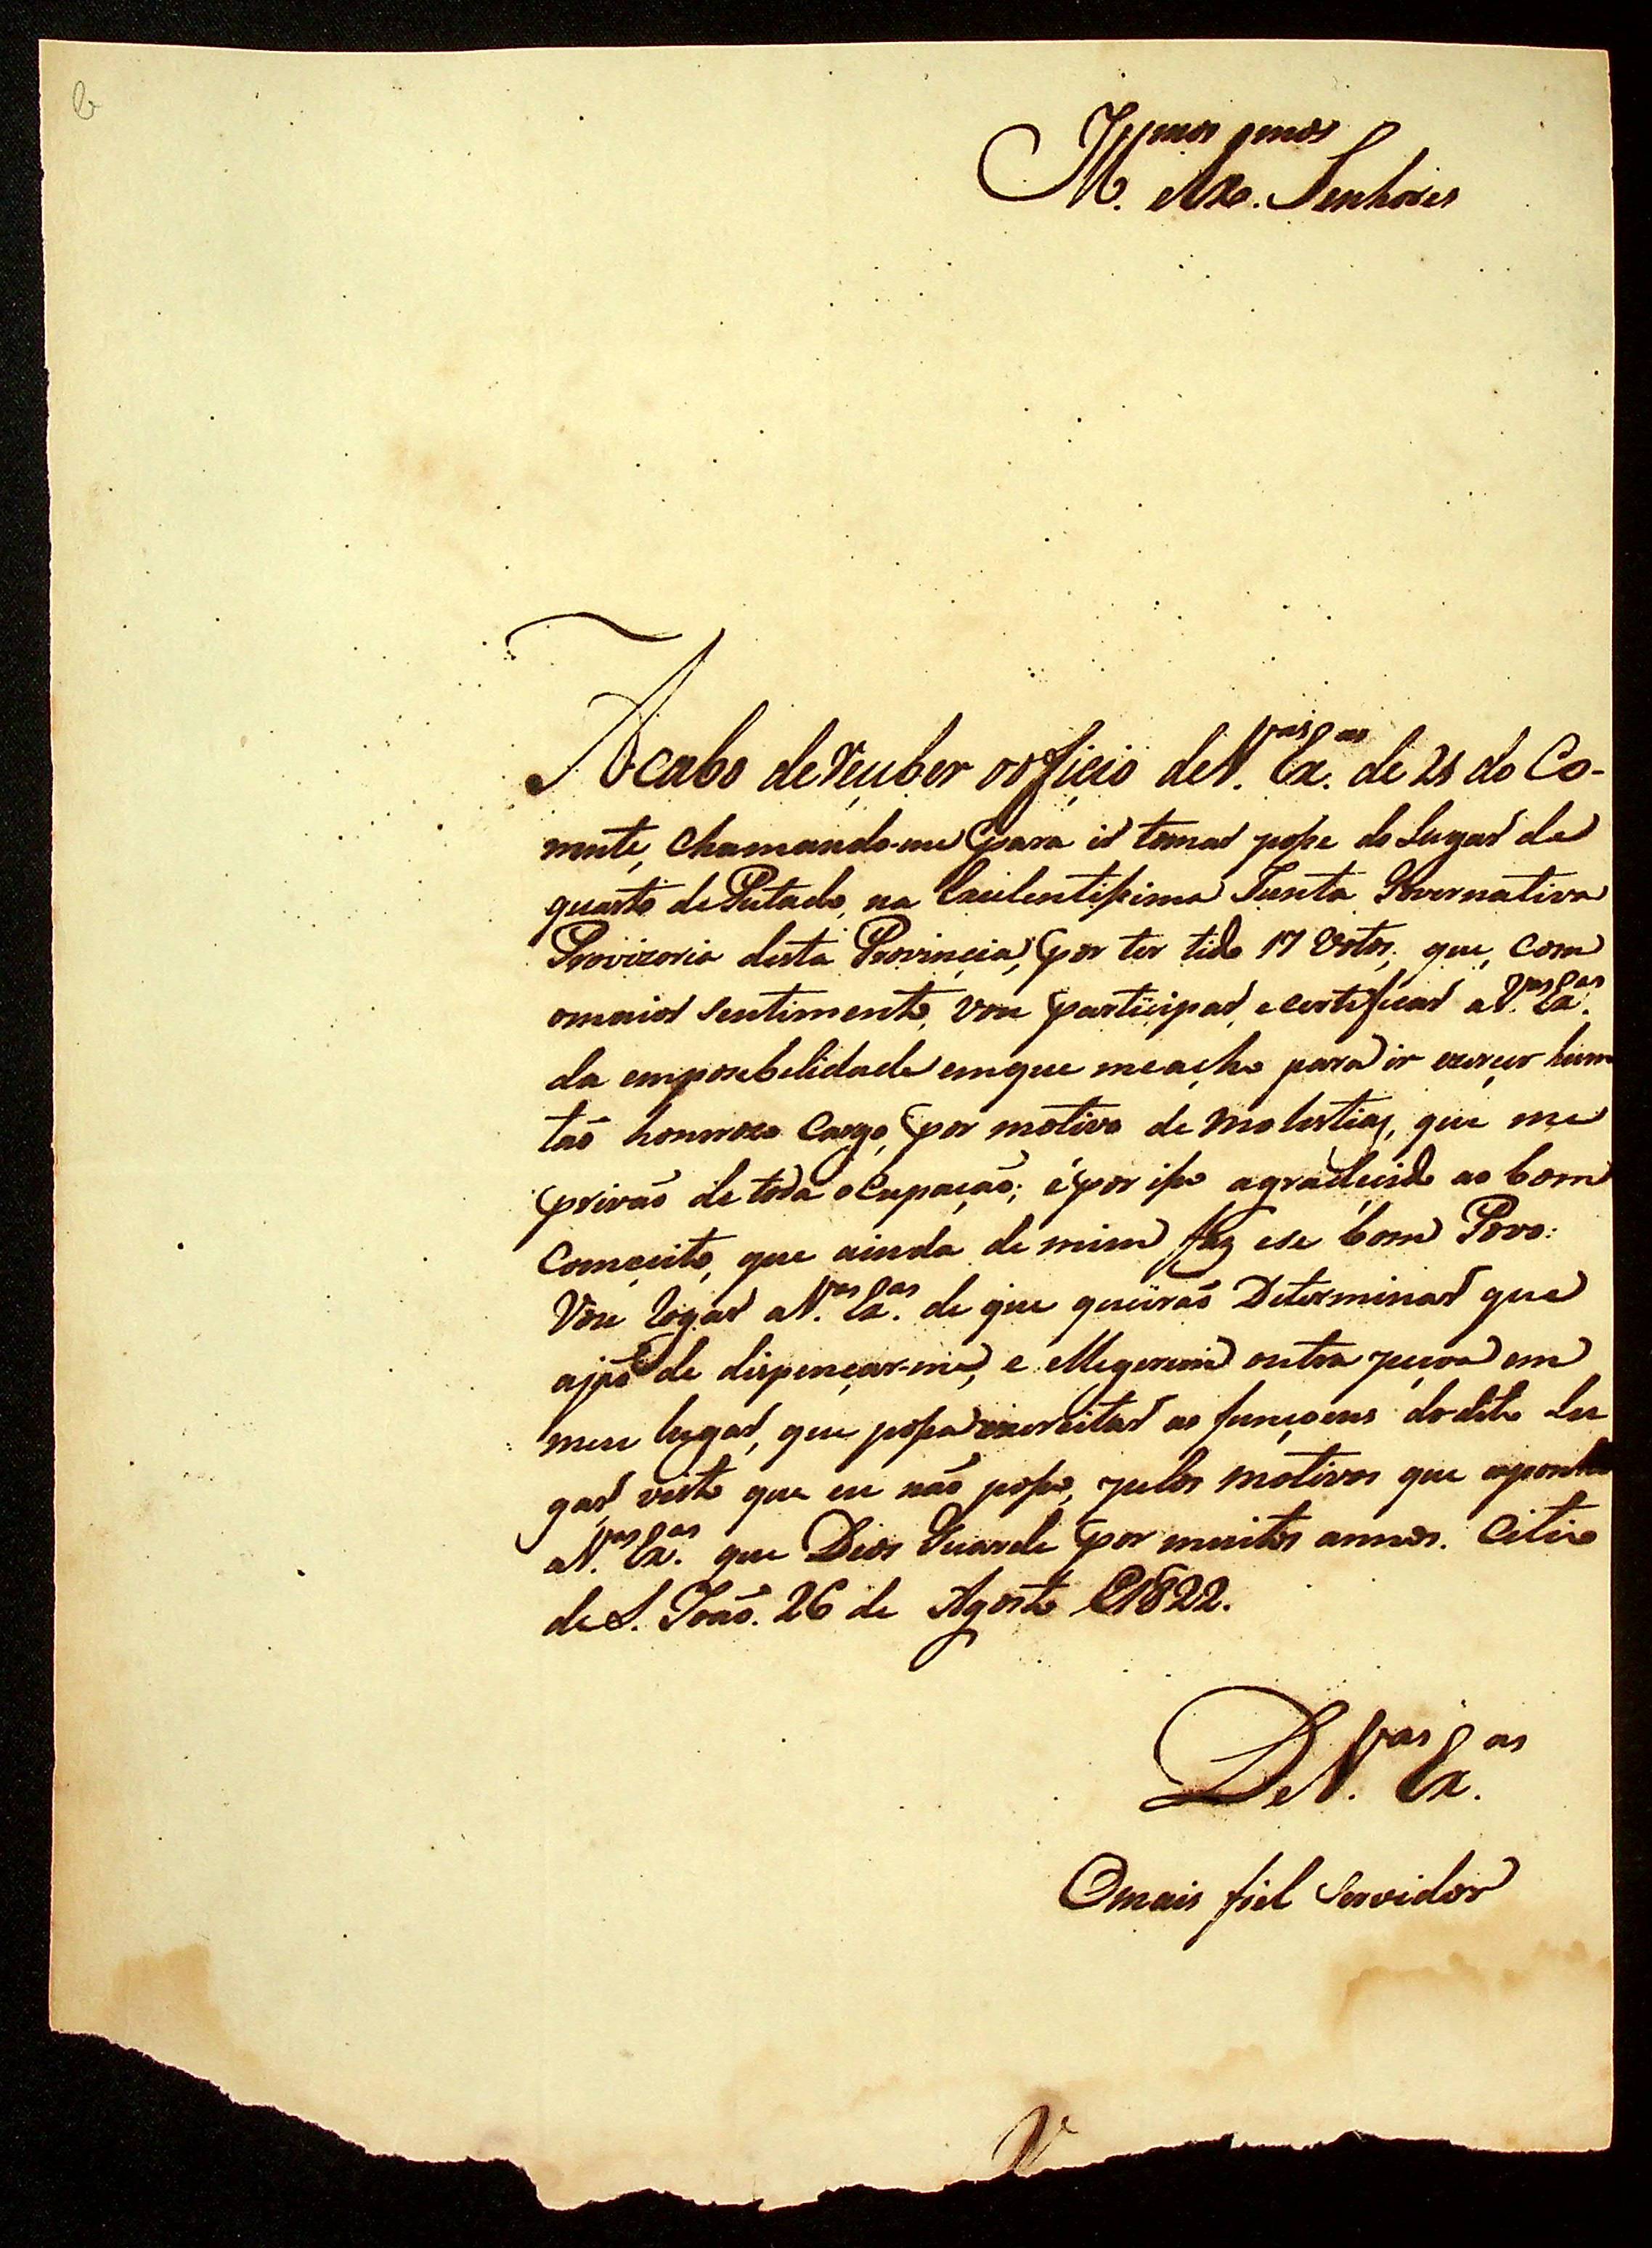 Ill.mos e Ex.mos Senhores
Acabo de receber o officio de V.as Ex.as de 21 do Co-
rrente, chamando-me para ir tomar posse do Lugar de
quarto de Putado, na Excelentissima Junta Governativa
Provizoria desta Provincia, por ter tido 17 Votos; que, com
omaior sentimento, vou participar, e certeficar a V.as Ex.as
da emposebelidade emque meacho para ir exercer hum
taõ honrrozo Cargo, por motivo de molestias, que me
privaõ de toda oCupaçaõ; e por iso agradecido ao bom
Comceito, que ainda de mim faz ese bom Povo:
Vou Rogar a V.as Ex.as de que queiraõ Determinar que
ajaõ de dispençar-me, e ellegerem outra peçoa em
meu lugar, que posa exercitar as funçoens do dito Lu
gar, visto que eu naõ poso, pelos motivos que aponto
a V.as Ex.as que Deos Guarde por muitos annos. Citio
de S. Joaõ. 26 de Agosto de 1822.
De V.as Ex.as
Omais fiel Servidor